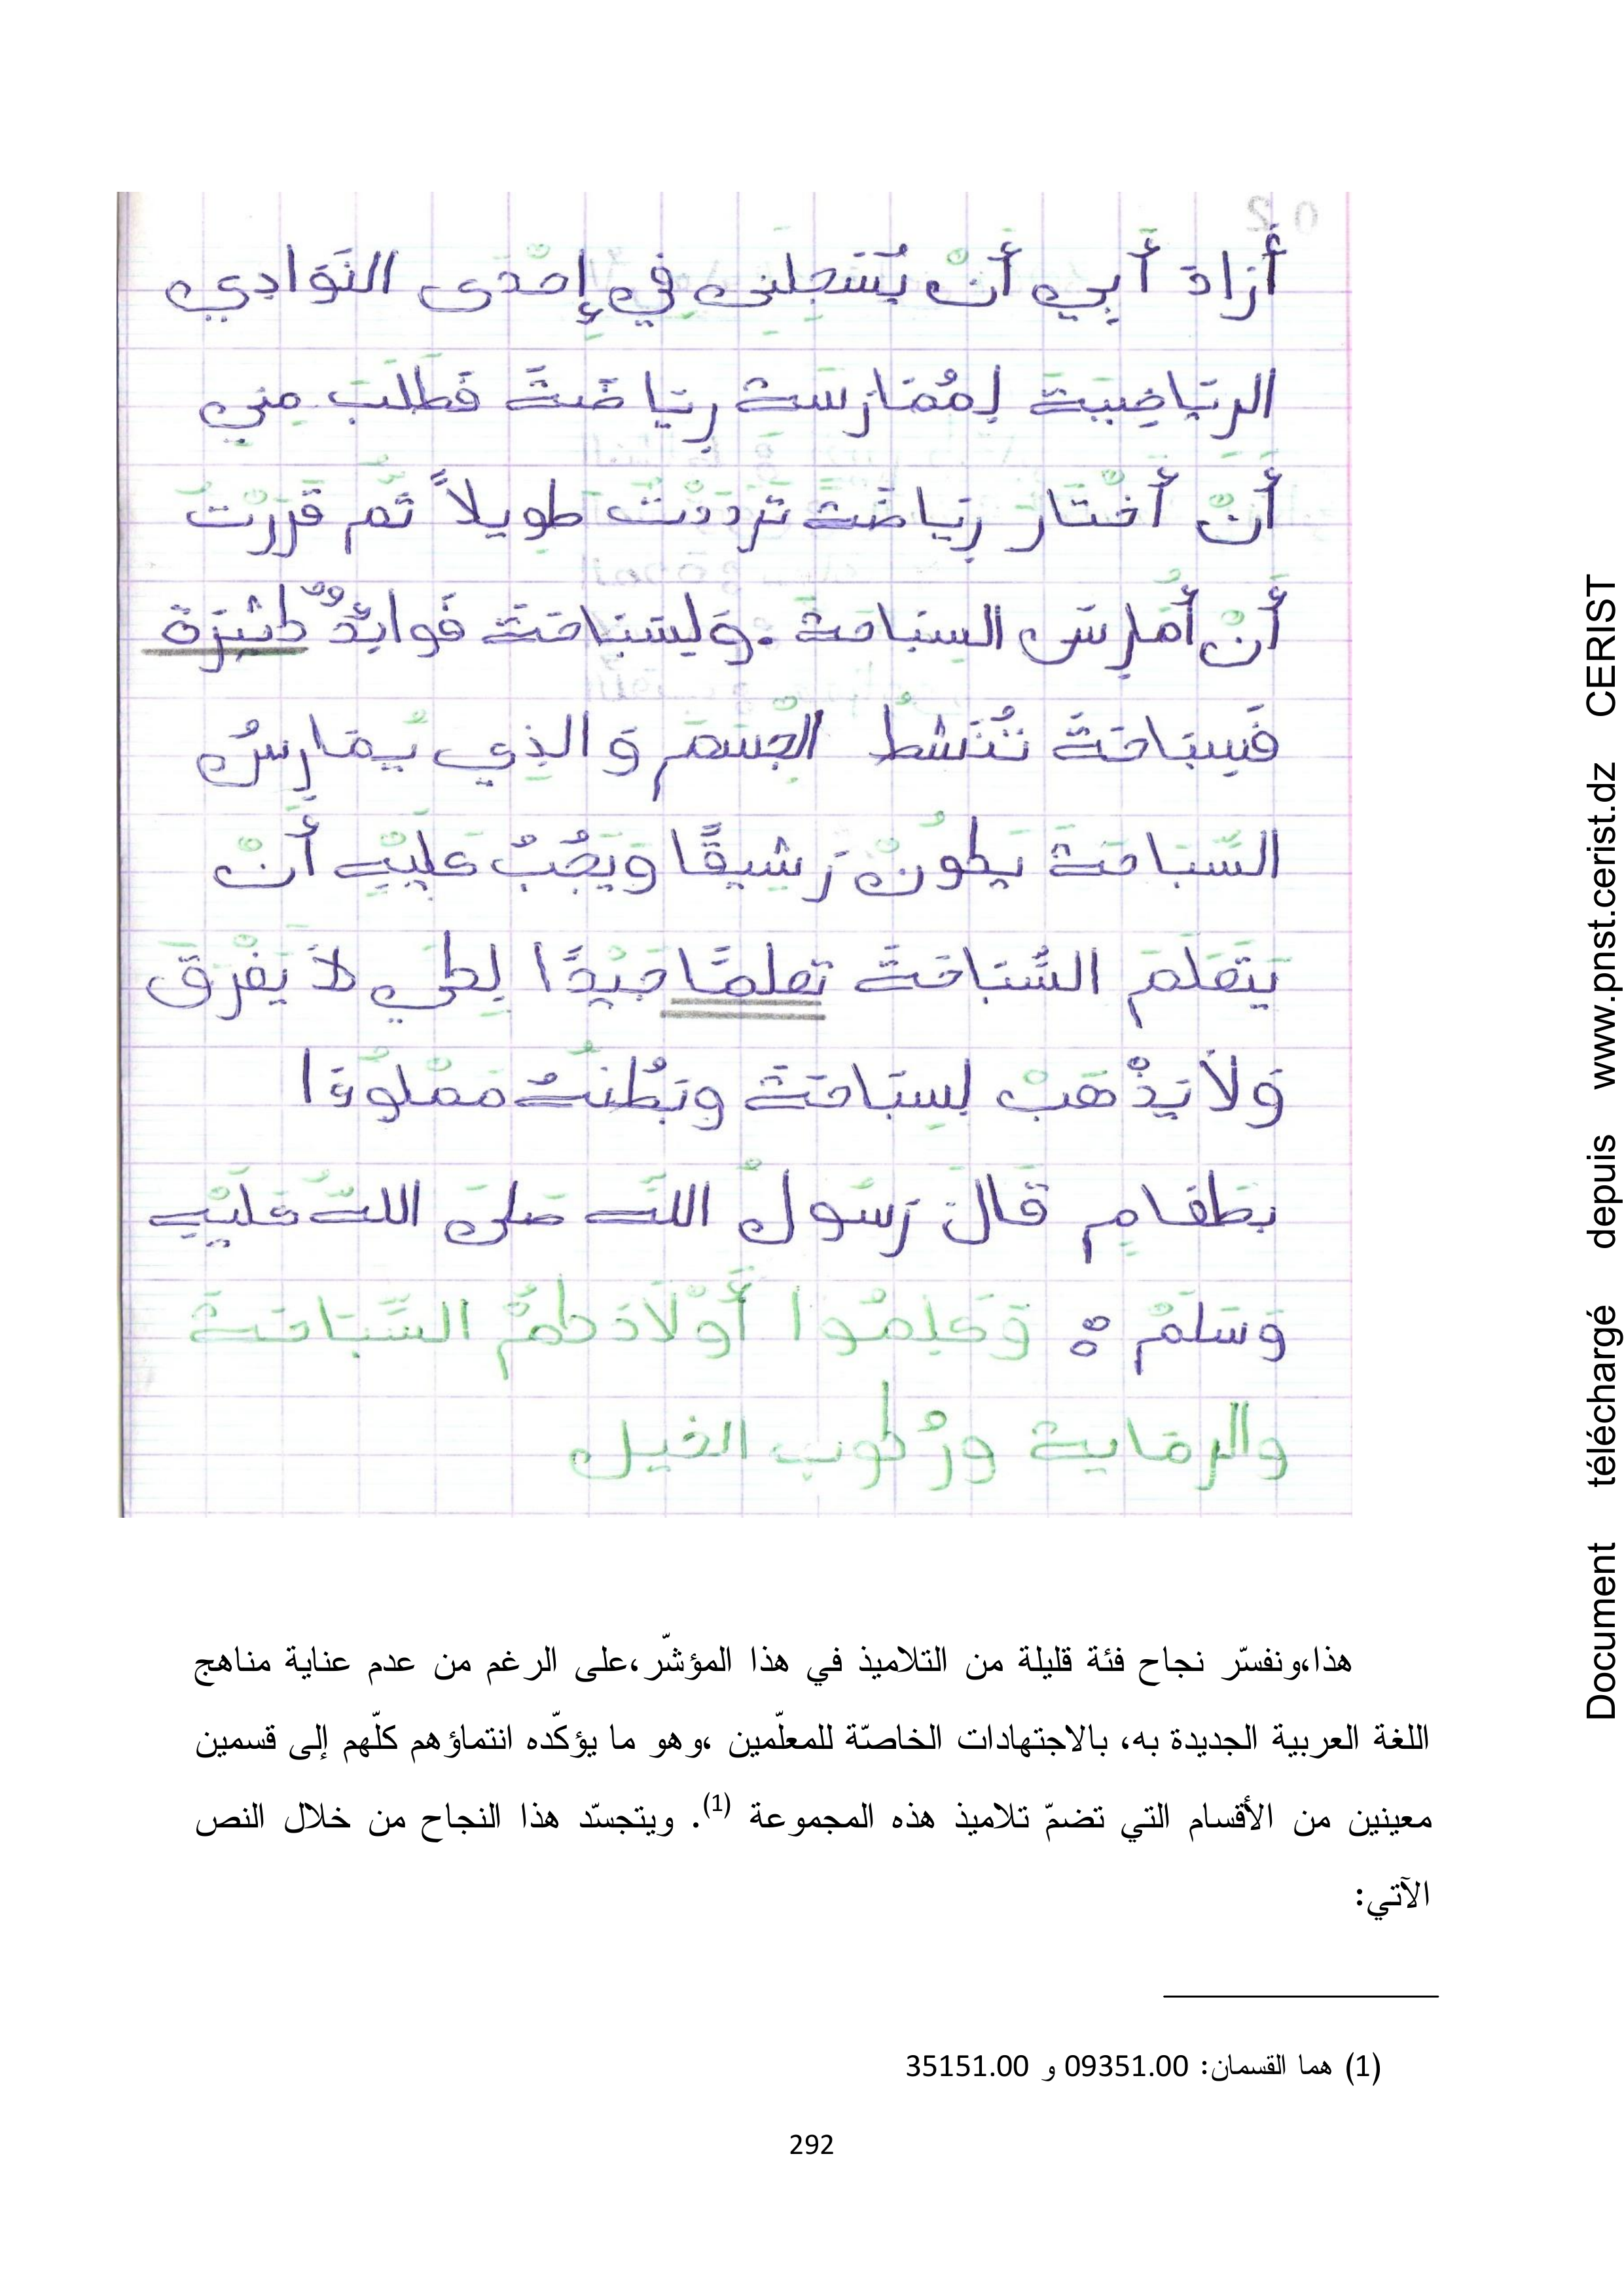 02
أَرَادَ أَبِي أَنْ يُسَجِلَنِى فِي إِحْدَى النَوَادِي
الرِيَاضِيَةِ لِمُمَارَسَةِ رِيَاضَةَ فَطَلَبَ مِنِي
أَنْ أَخْتَارَ رِيَاضَةَ تَرَدَدْتُ طَوِيلاً ثُم قَرَرْتُ
أَنْ أُمَارِسَ السِبَاحَة. وَلِسَبَاحَةَ فَوائِدٌ كَثِيرَة
فَسِبَاحَةَ تُنَشطُ الْجِسْمَ وَالذِي يُمَارِسُ
السِّبَاحَةَ يَكُونْ رَشِيقًا وَيَجُبُ عَلَيْهِ أَنْ
يَتَعَلَمَ السُّبَاحَةَ تعلمًا جَيْدًا لِكَي لاَ يَغْرَقَ
وَلاَ يَذْهَبْ لِسِبَاحَةَ وبَطْنُهُ مَمْلوُءَا
بطَعَامٍ قَالَ رَسُولُ اللَّه صَلىَ اللهُ عَلَيْهِ
وَسَلَمْ : وَعَلِمُوا أَوْلَادَكُمُ السِّبَاحَةَ
والرماية ورُكوب الخيل
هذا،ونفسّر نجاح فئة قليلة من التلاميذ في هذا المؤشّر،على الرغم من عدم عناية مناهج
اللغة العربية الجديدة به، بالاجتهادات الخاصّة للمعلّمين ،وهو ما يؤكّده انتماؤهم كلّهم إلى قسمين
معينين من الأقسام التي تضمّ تلاميذ هذه المجموعة (1). ويتجسّد هذا النجاح من خلال النص
الآتي:
(1) هما القسمان: 09351.00 و 35151.00
292
Document téléchargé depuis www.pnst.cerist.dz CERIST